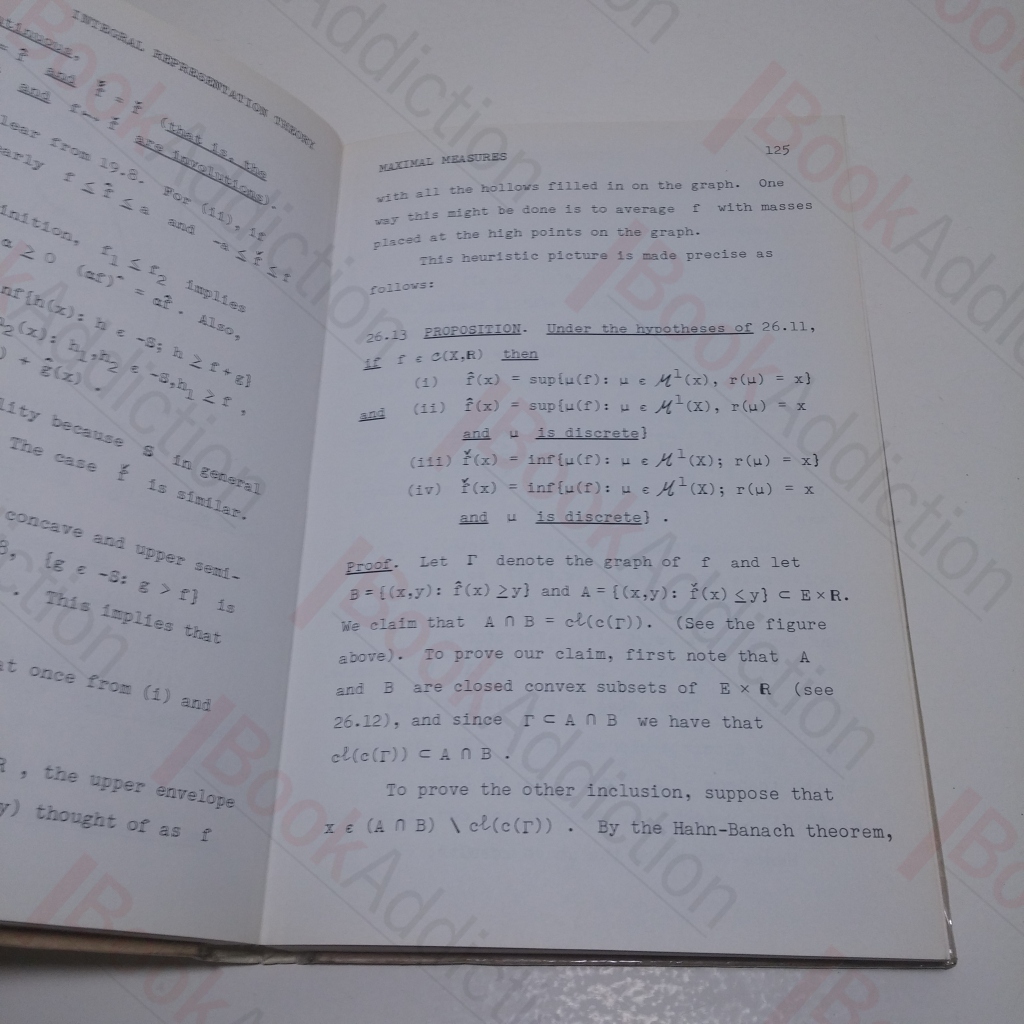 INTEGRAL REPRESENTATION THEORY
and
(that is, the
and are involutions).
lear from 19.8. For (ii), if
early f ≤ f̂ ≤ a and -a ≤ f̌ ≤ f
inition, f₁ ≤ f₂ implies
α ≥ 0 (αf)^ = αf̂. Also,
nf{h(x): h ε -S; h ≥ f+g}
₂(x): h₁,h₂ ε -S,h₁ ≥ f ,
) + ĝ(x) .
lity because S in general
The case f̌ is similar.
concave and upper semi-
{g ε -S: g > f} is
. This implies that
at once from (i) and
R , the upper envelope
y) thought of as f
MAXIMAL MEASURES 125
with all the hollows filled in on the graph. One
way this might be done is to average f with masses
placed at the high points on the graph.
This heuristic picture is made precise as
follows:
26.13 PROPOSITION. Under the hypotheses of 26.11,
if f ε C(X,R) then
(i) f̂(x) = sup{μ(f): μ ε ℳ¹(x), r(μ) = x}
and (ii) f̂(x) = sup{μ(f): μ ε ℳ¹(X), r(μ) = x
and μ is discrete}
(iii) f̌(x) = inf{μ(f): μ ε ℳ¹(X); r(μ) = x}
(iv) f̌(x) = inf{μ(f): μ ε ℳ¹(X); r(μ) = x
and μ is discrete} .
Proof. Let Γ denote the graph of f and let
B = {(x,y): f̂(x) ≥ y} and A = {(x,y): f̌(x) ≤ y} ⊂ E×R.
We claim that A ∩ B = cℓ(c(Γ)). (See the figure
above). To prove our claim, first note that A
and B are closed convex subsets of E × R (see
26.12), and since Γ ⊂ A ∩ B we have that
cℓ(c(Γ)) ⊂ A ∩ B .
To prove the other inclusion, suppose that
x ε (A ∩ B) \ cℓ(c(Γ)) . By the Hahn-Banach theorem,
BookAddiction